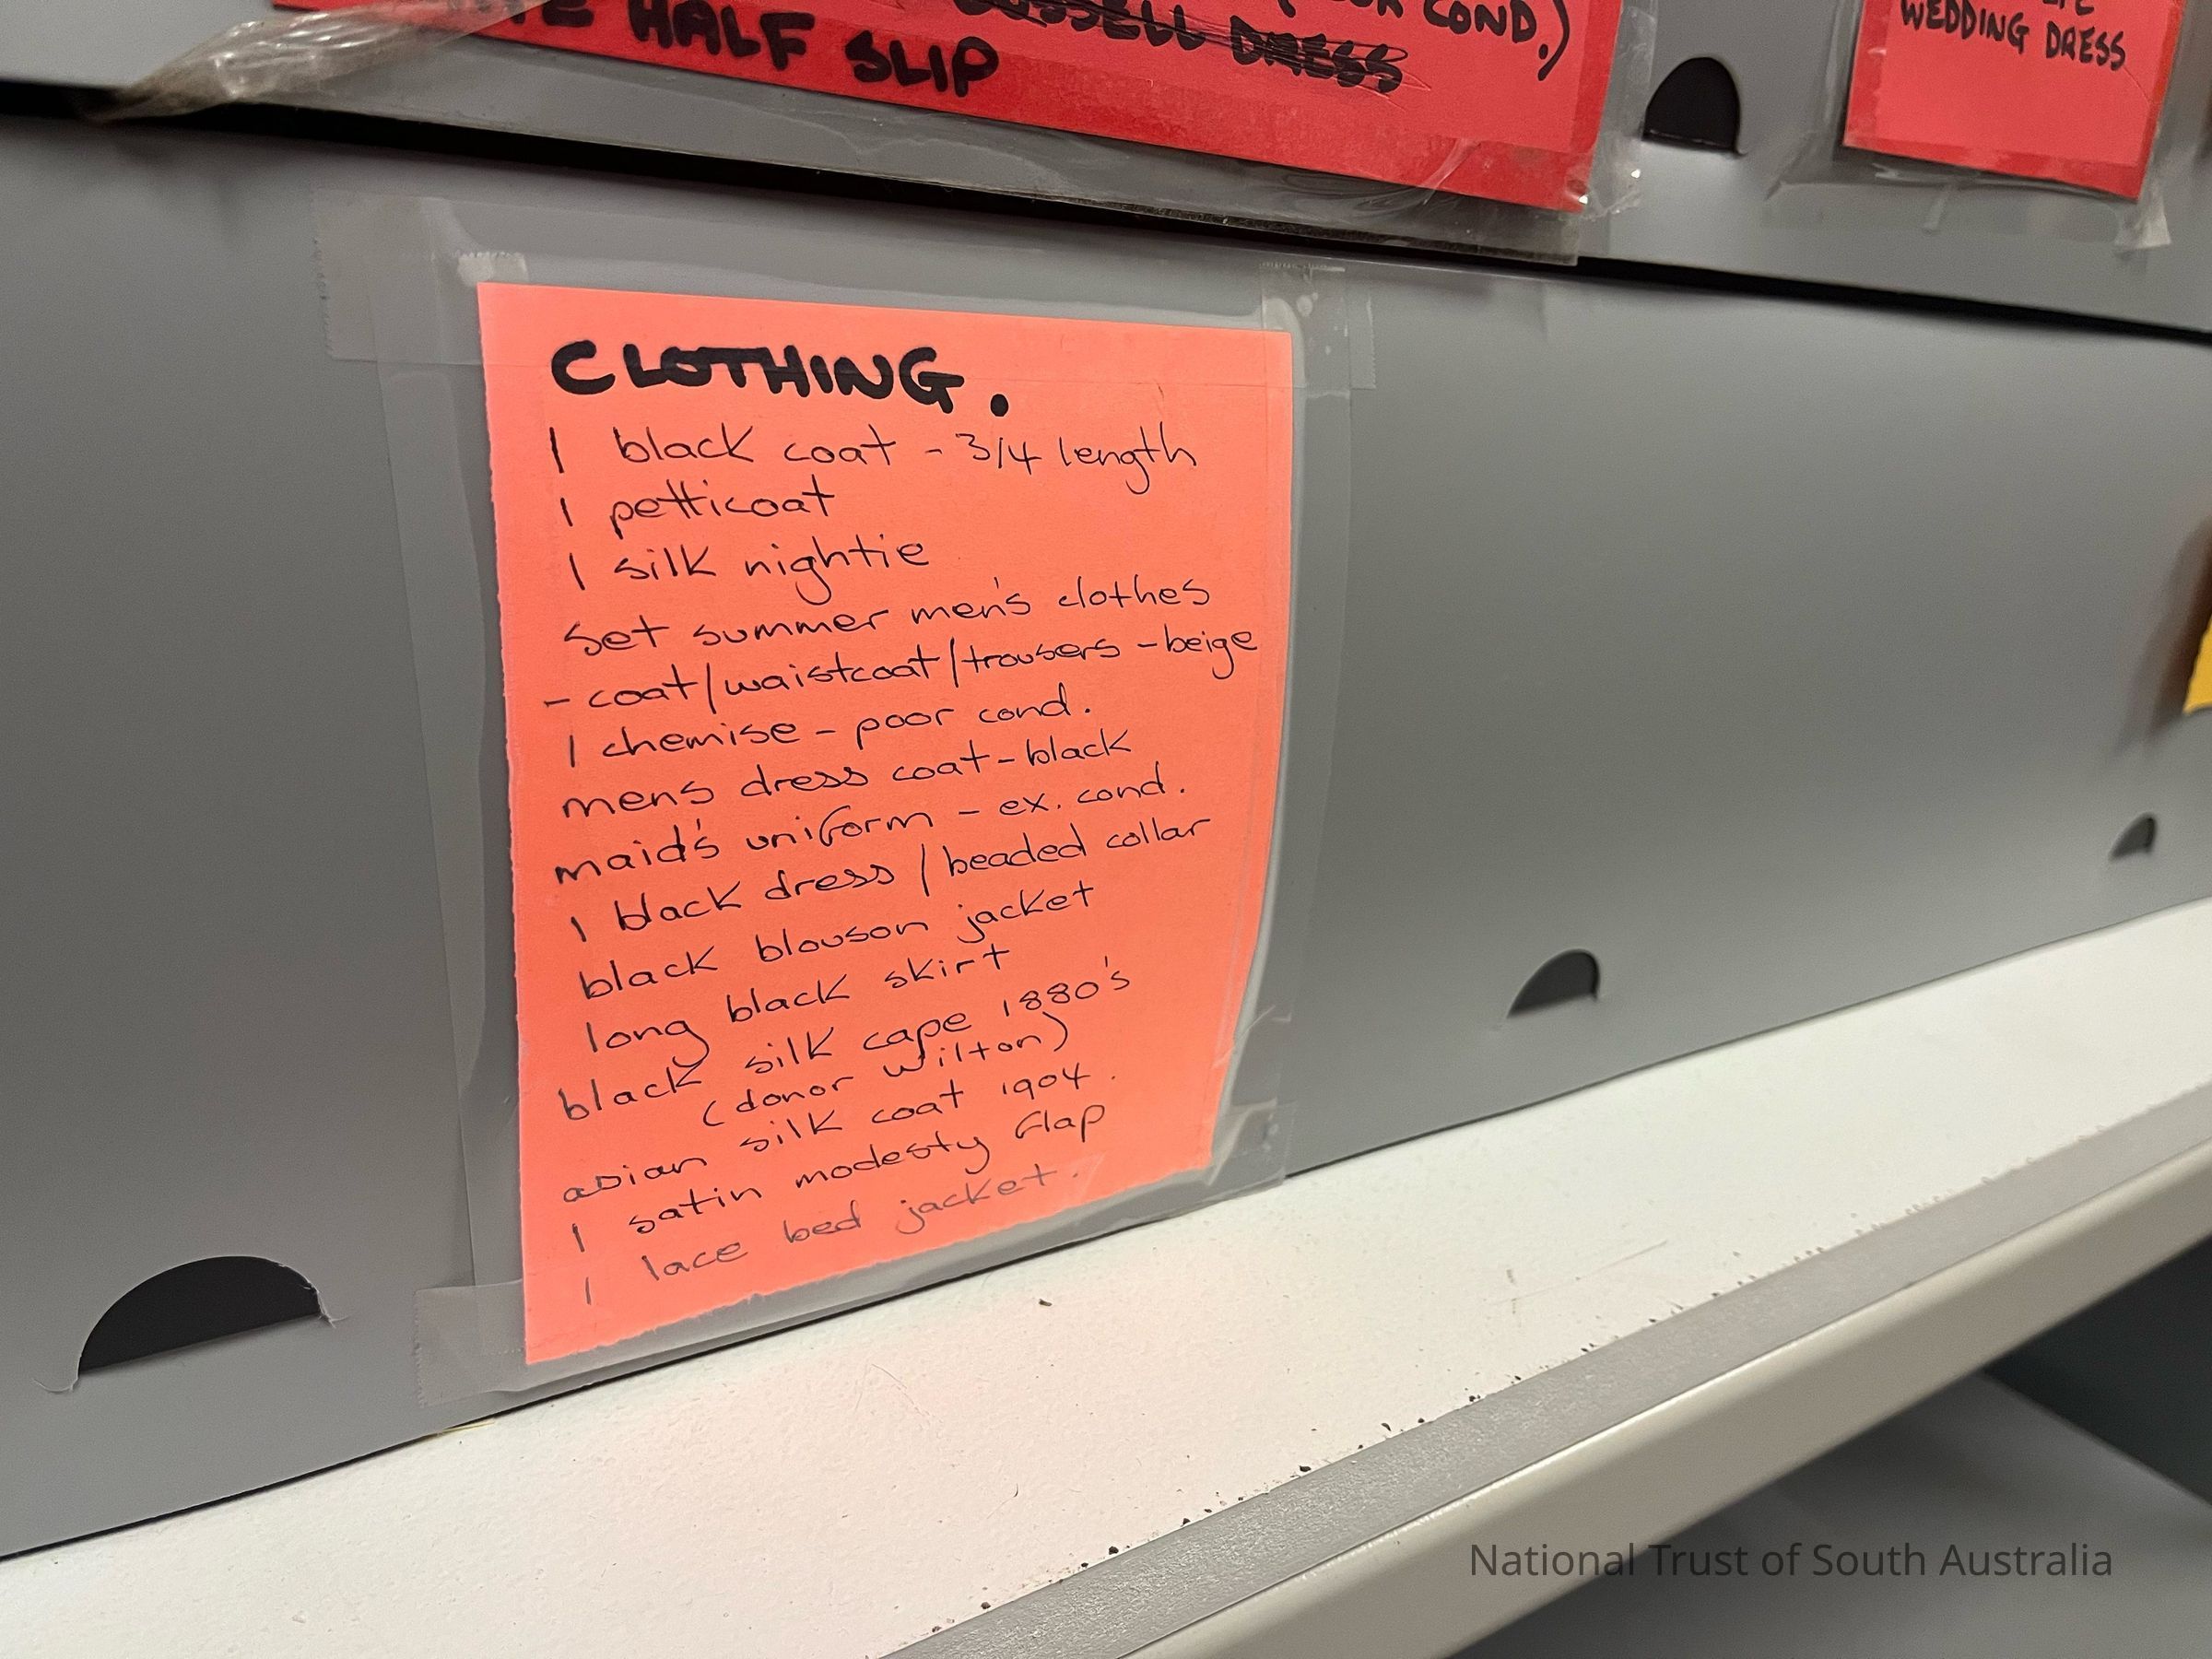 HALF SLIP
RUSSELL DRESS
COND.)
WEDDING DRESS
CLOTHING.
1 black coat - 3/4 length
1 petticoat
1 silk nightie
Set summer men's clothes
- coat/waistcoat/trousers - beige
1 chemise - poor cond.
mens dress coat - black
maid's uniform - ex. cond.
1 black dress / beaded collar
black blouson jacket
long black skirt
black silk cape 1880's
(donor Wilton)
asian silk coat 1904.
1 satin modesty flap
1 lace bed jacket.
National Trust of South Australia